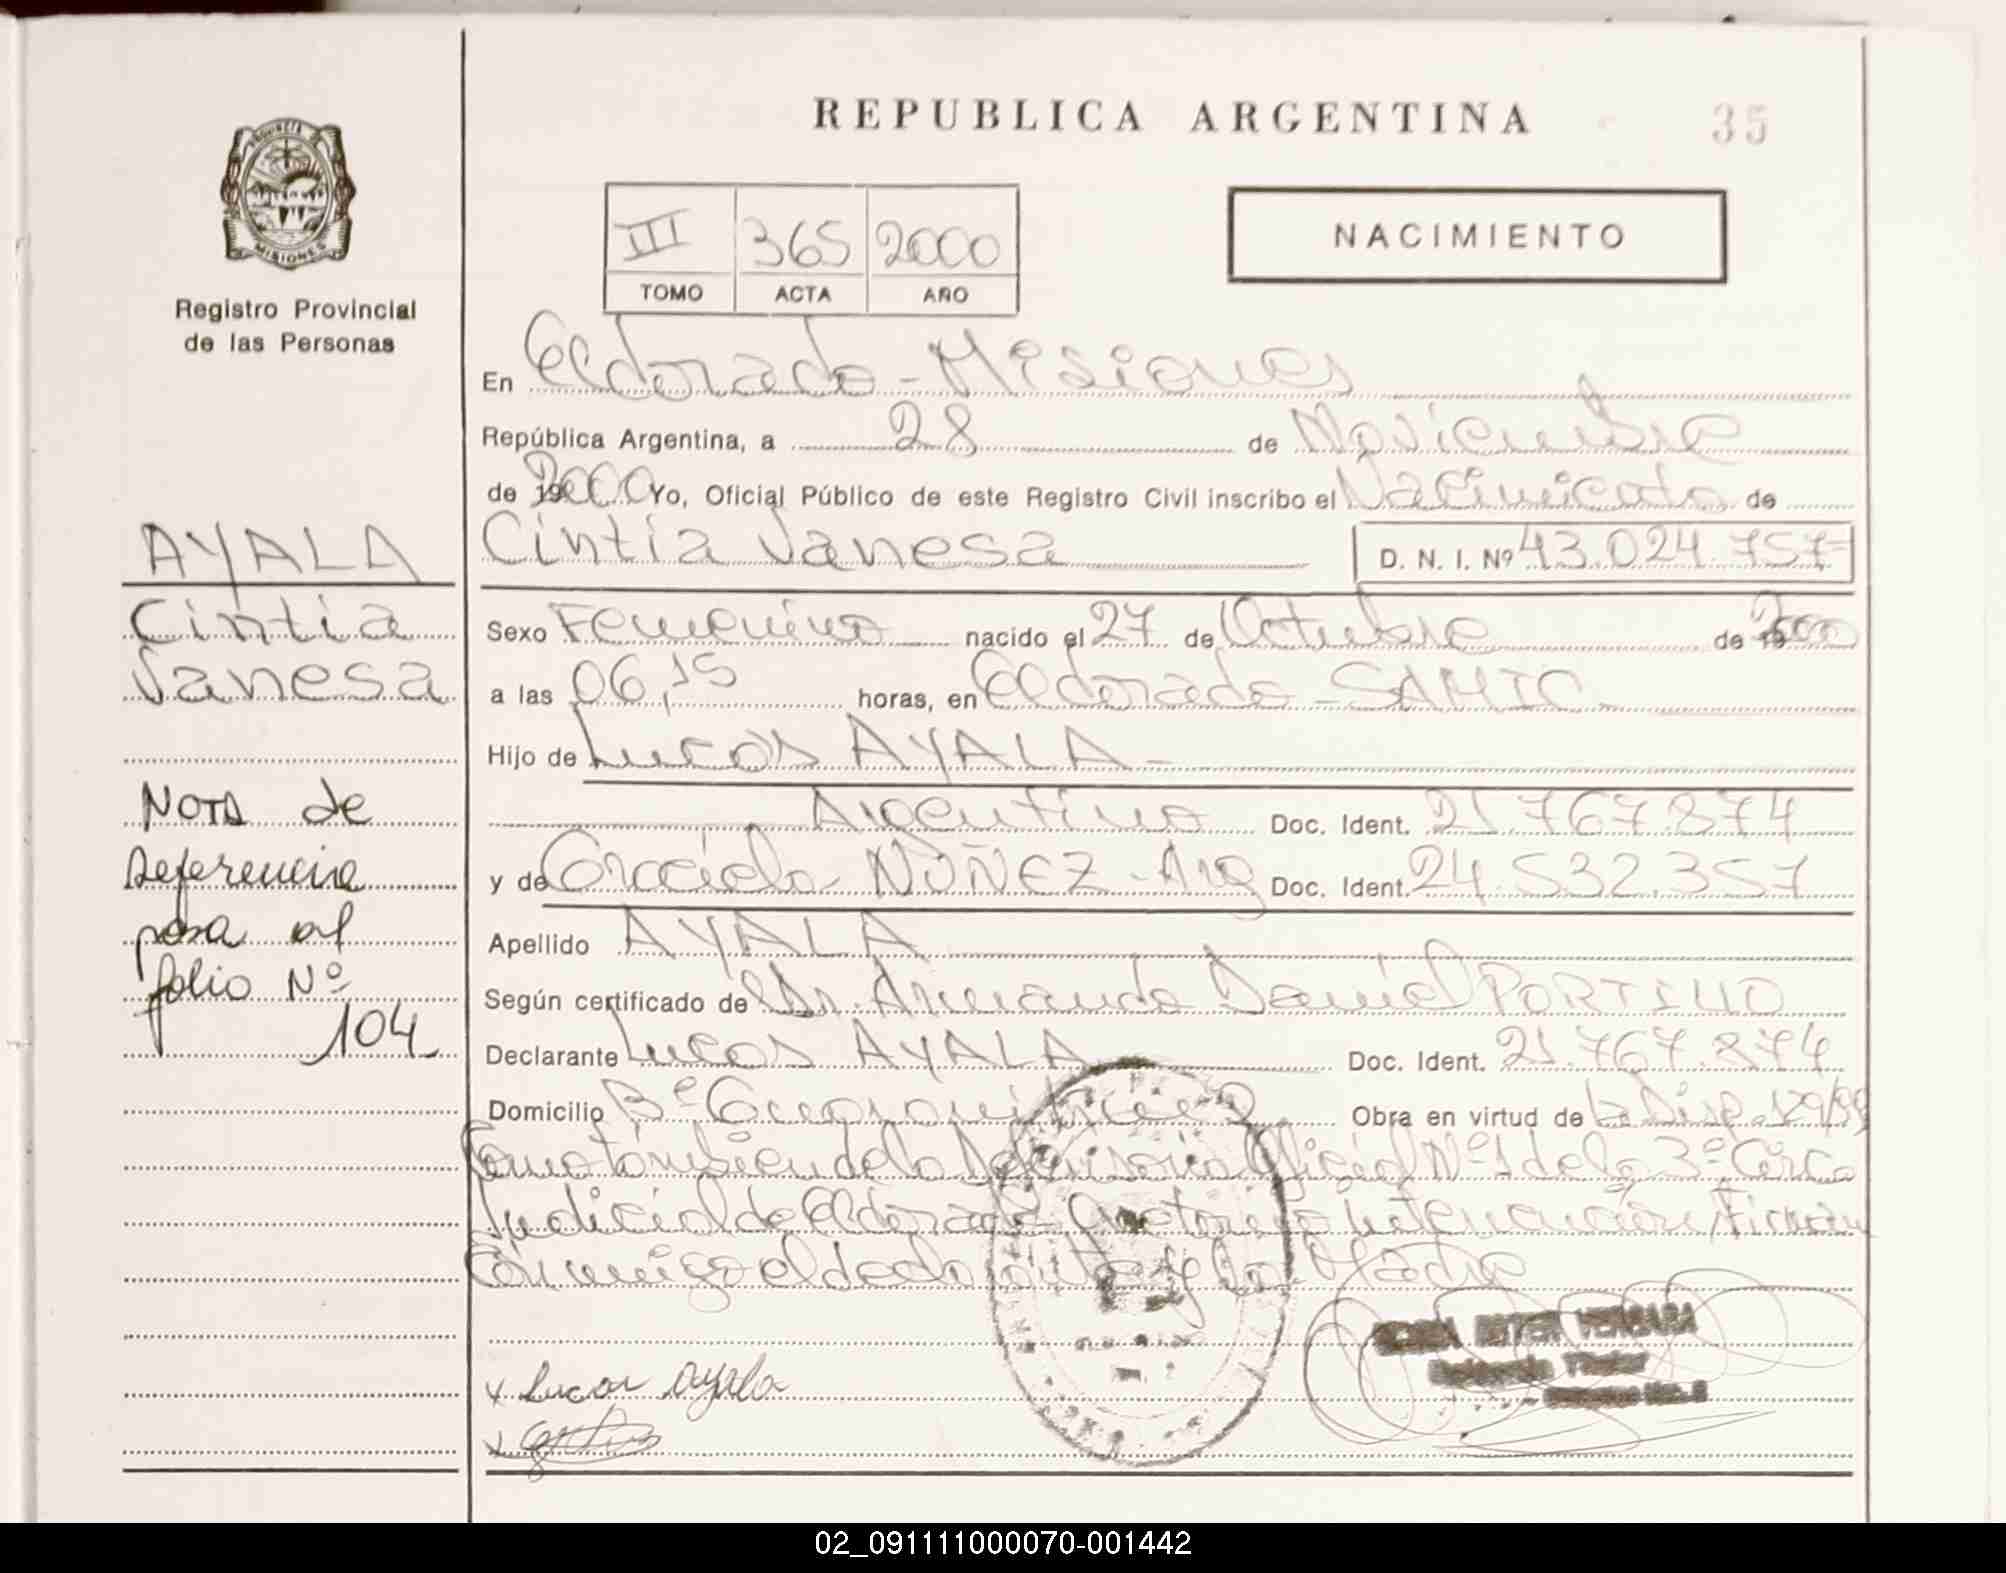 REPUBLICA ARGENTINA
35
PROVINCIA DE
MISIONES
Registro Provincial
de las Personas
III 365 2000
TOMO ACTA AÑO
NACIMIENTO
En Eldorado - Misiones
República Argentina, a 28 de Noviembre
de 19 2000 Yo, Oficial Público de este Registro Civil inscribo el Nacimiento de
Cintia Vanesa D. N. I. Nº 43.024.757
AYALA
Cintia
Vanesa
Sexo Femenino nacido el 27 de Octubre de 19 2000
a las 06,15 horas, en Eldorado - SAMIC
Hijo de Lucas AYALA -
Argentino Doc. Ident. 21.767.874
y de Graciela NUÑEZ - Arg Doc. Ident. 24.532.357
Apellido AYALA
Según certificado de Dr. Armando Daniel PORTILLO
Declarante Lucas AYALA Doc. Ident. 21.767.874
Domicilio Bº 2 Obra en virtud de la Disp. 129/99
Como también de la Defensoria Oficial Nº 1 de la 3º Circ.
Judicial de Eldorado intervención/Firman
Conmigo el declarante y la Madre
Nota de
Referencia
pasa al
folio Nº
104
x Lucas Ayala
x
VERGARA
Titular
02_091111000070-001442